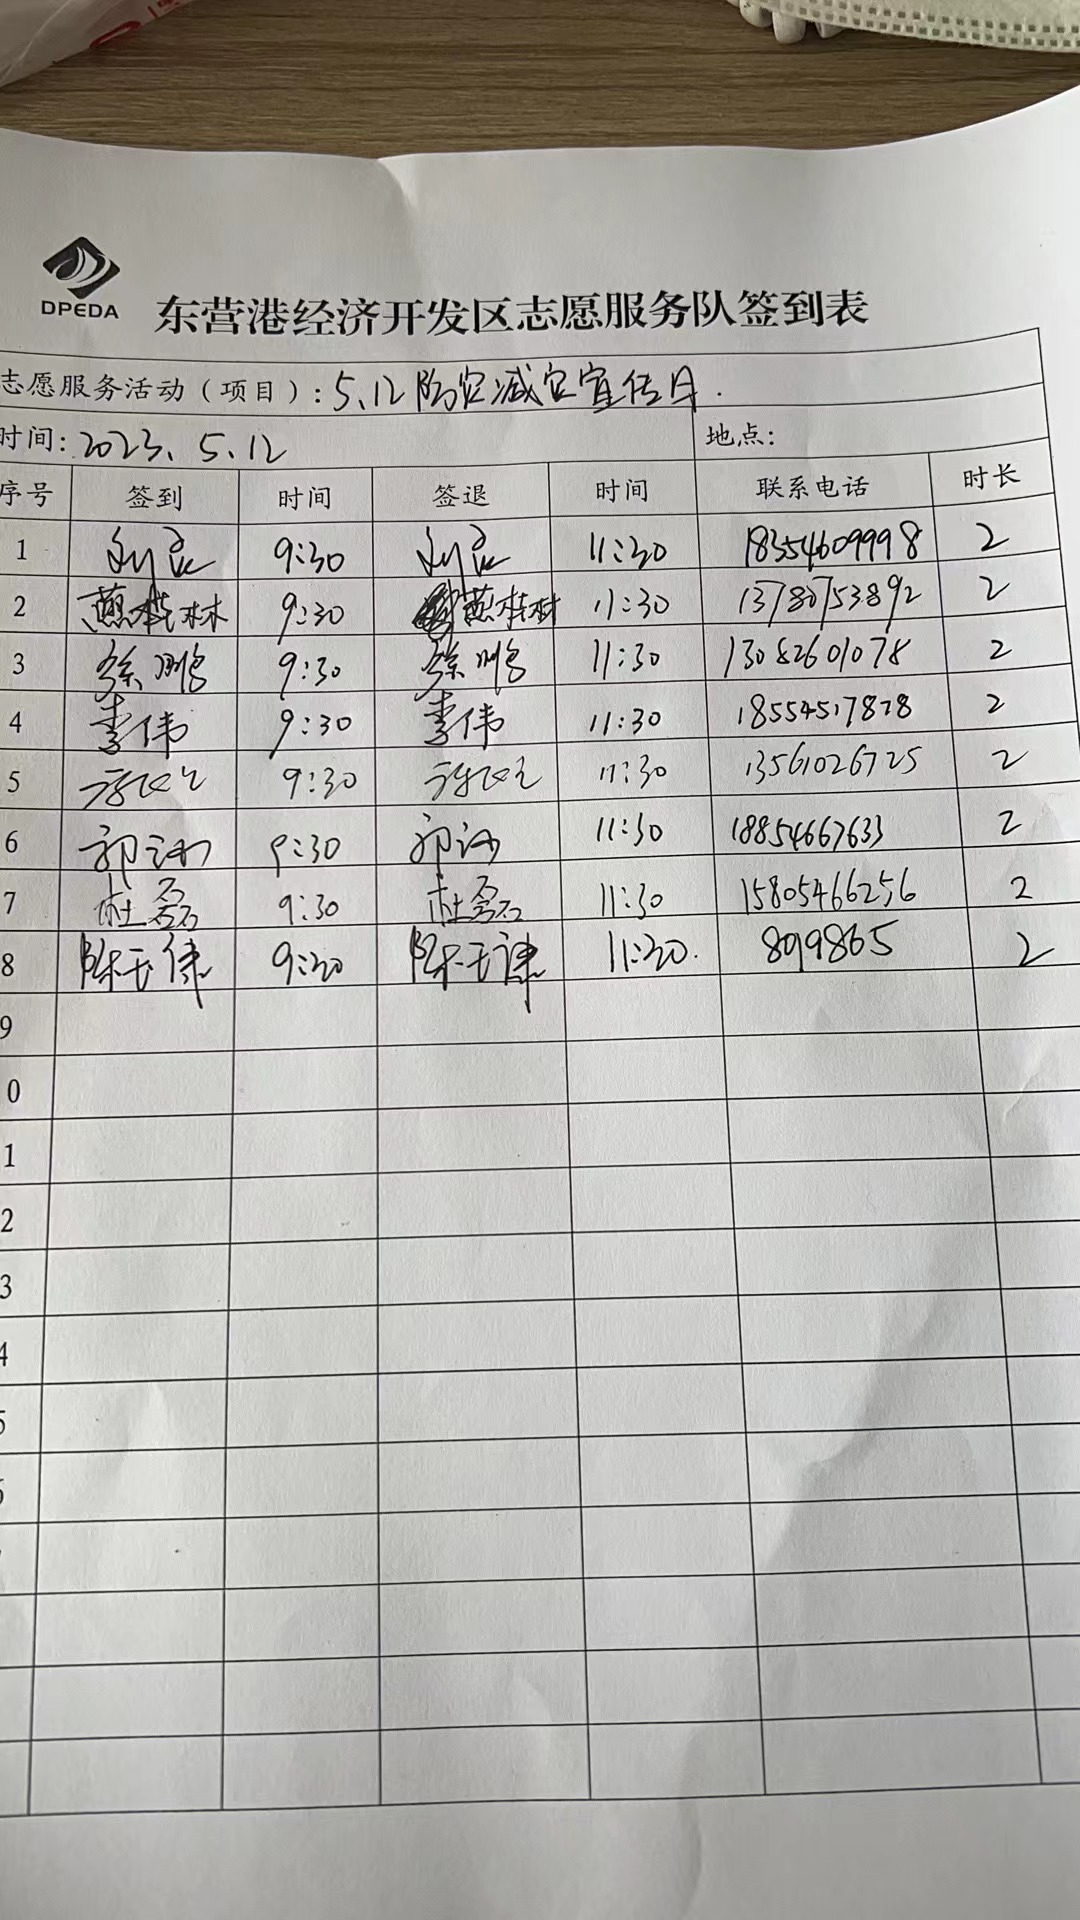 DPEDA
东营港经济开发区志愿服务队签到表
志愿服务活动（项目）：5.12防灾减灾宣传日.
时间：2023.5.12 地点：
序号 签到 时间 签退 时间 联系电话 时长
1 9:30 11:30 18354609998 2
2 9:30 11:30 13780753892 2
3 徐鹏 9:30 徐鹏 11:30 13082601078 2
4 李伟 9:30 李伟 11:30 2
5 9:30 11:30 13561026725 2
6 郭 9:30 郭 11:30 18854667633 2
7 杜磊 9:30 杜磊 11:30 15805466256 2
8 陈 9:30 陈 11:30. 8099865 2
9
0
1
2
3
4
5